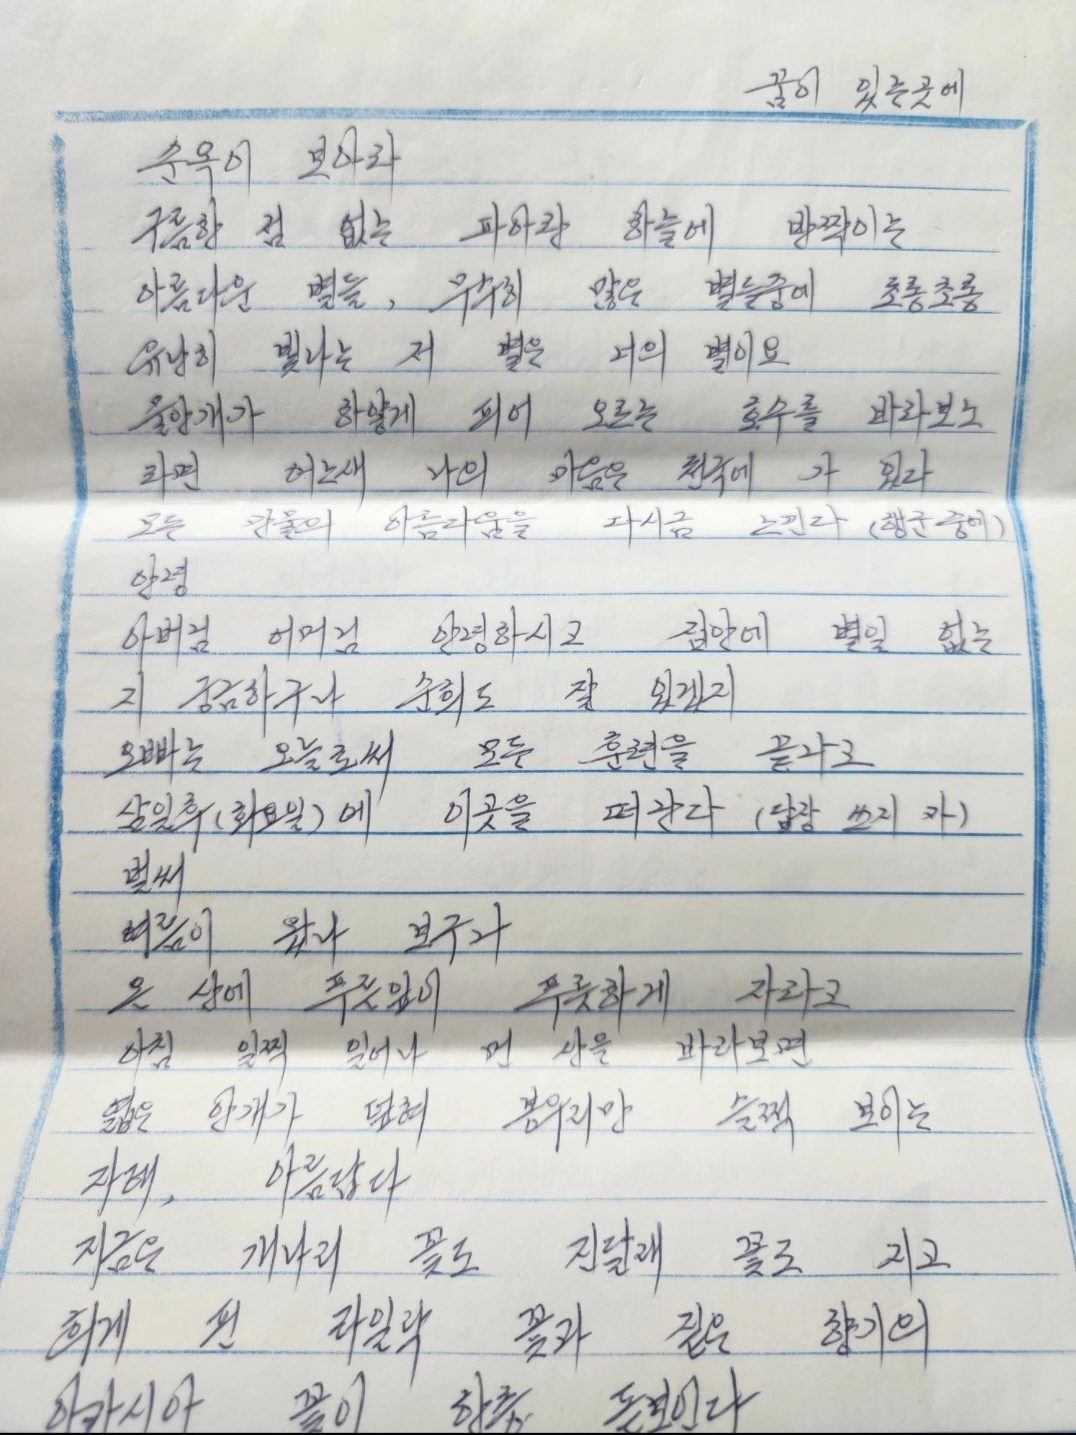 꿈이 있는곳에
순옥이 보아라
구름한 점 없는 파아란 하늘에 반짝이는
아름다운 별들, 무수히 많은 별들중에 초롱초롱
유난히 빛나는 저 별은 너의 별이요
물안개가 하얗게 피어 오르는 호수를 바라보노
라면 어느새 나의 마음은 천국에 가 있다
모든 만물의 아름다움을 다시금 느낀다 (행군중에)
안녕
아버님 어머님 안녕하시고 집안에 별일 없는
지 궁금하구나 순희도 잘 있겠지
오빠는 오늘로써 모든 훈련을 끝나고
삼일후(화요일)에 이곳을 떠난다 (답장 쓰지 마)
벌써
여름이 왔나 보구나
온 산에 푸릇잎이 푸릇하게 자라고
아침 일찍 일어나 먼 산을 바라보면
엷은 안개가 덮혀 봉우리만 슬쩍 보이는
자태, 아름답다
지금은 개나리 꽃도 진달래 꽃도 지고
희게 핀 라일락 꽃과 짙은 향기의
아카시아 꽃이 한층 돋보인다